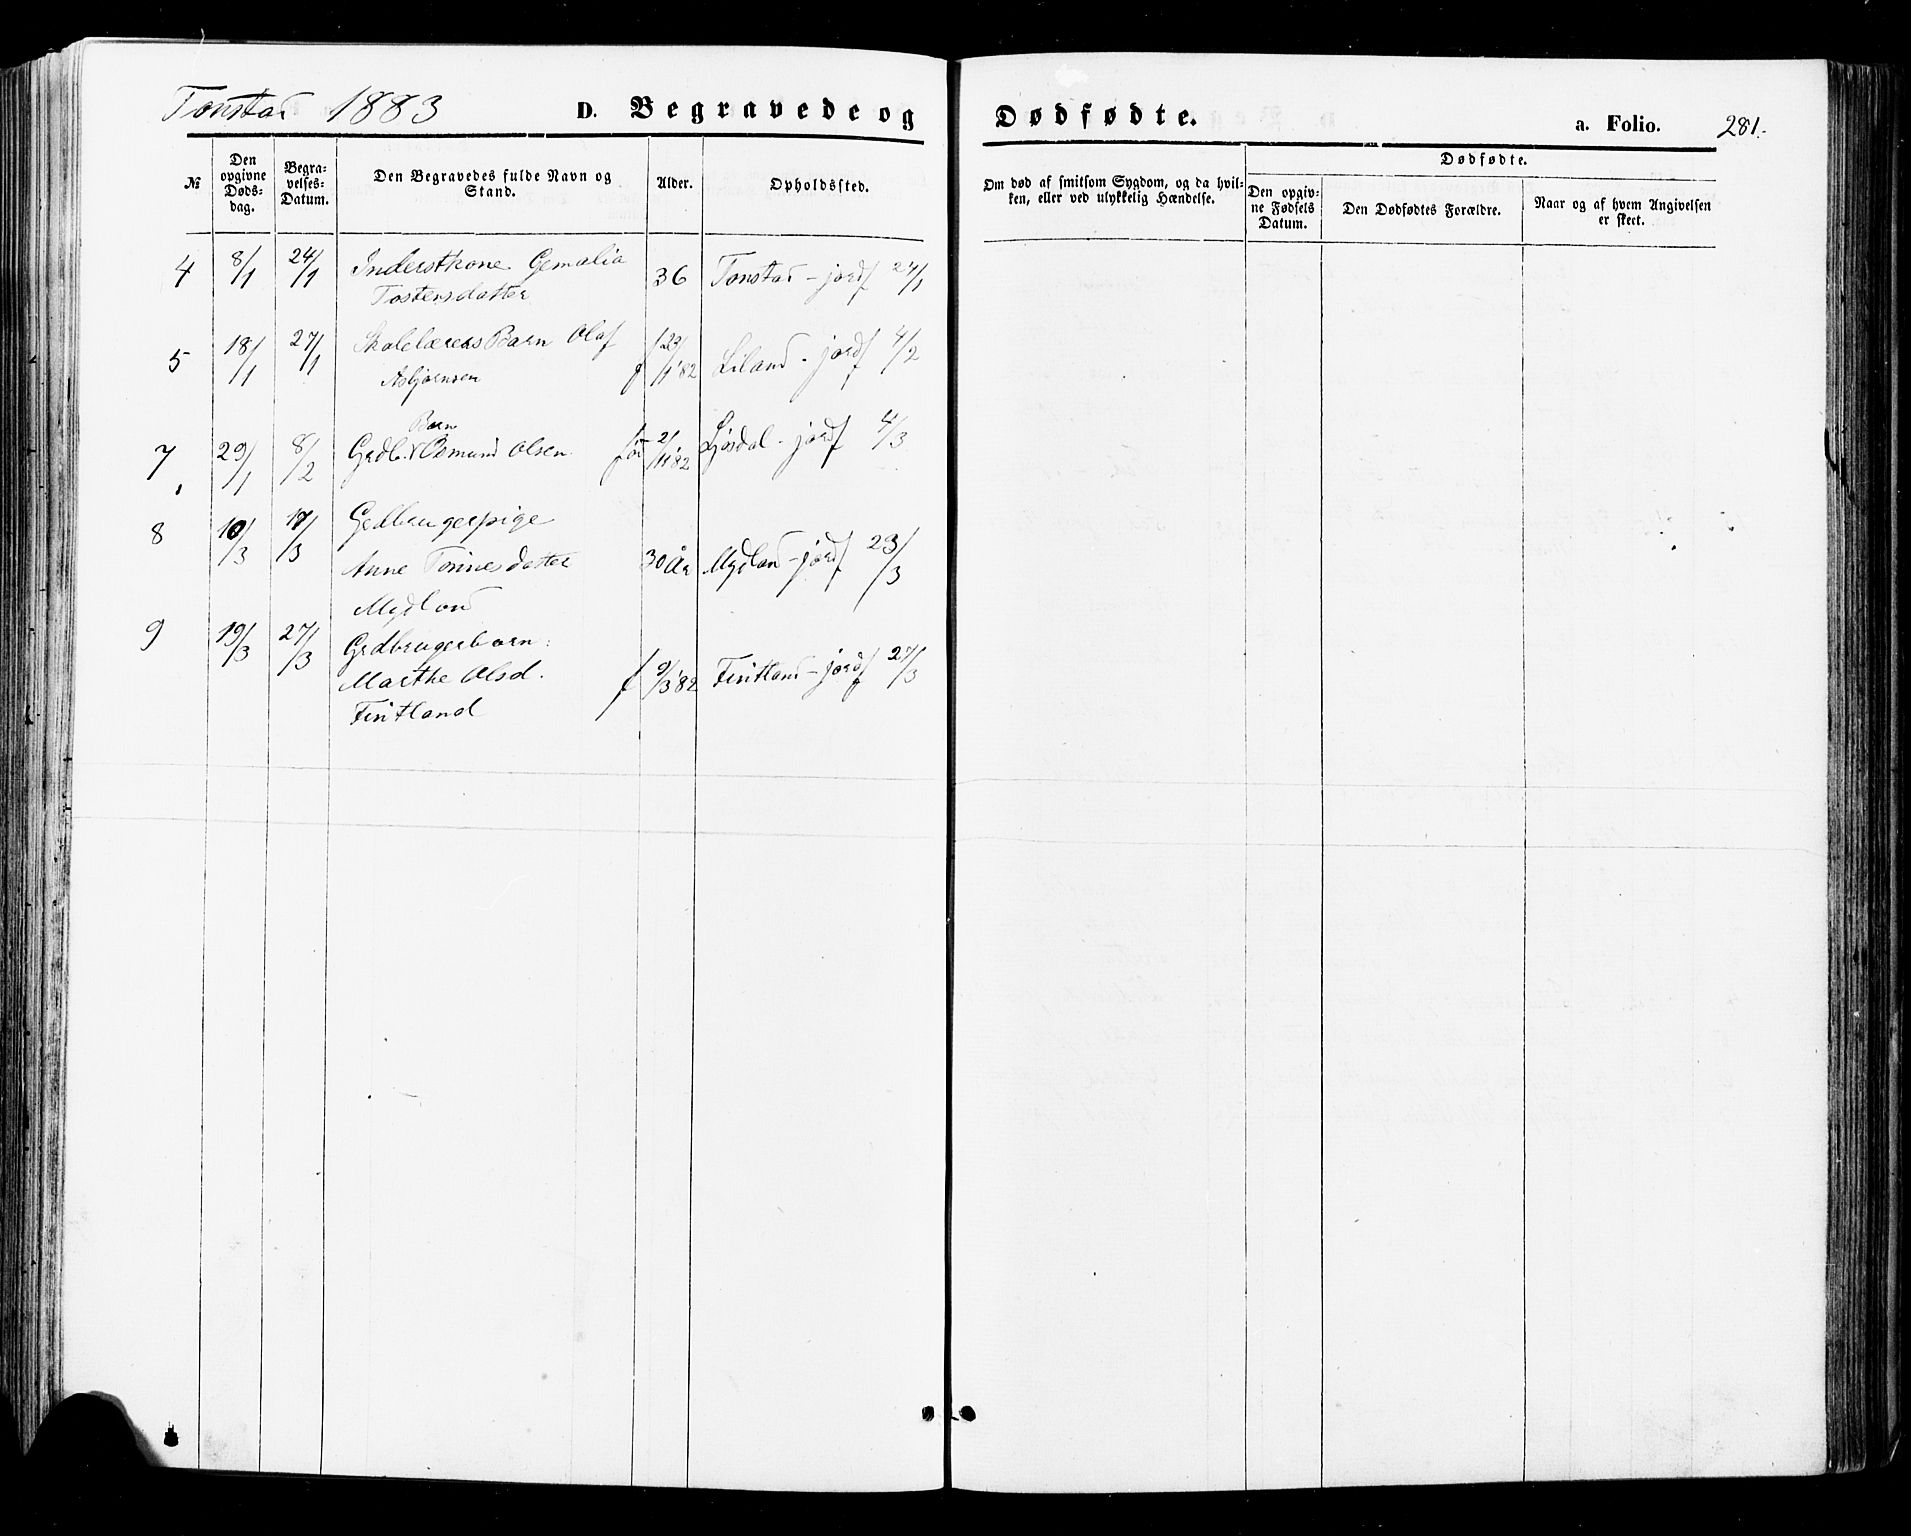 Tonstad 1883 D. Begravede og Dødfødte. a. Folio. 281.
№ Den opgivne Døds-dag. Begra-velses-Datum. Den Begravedes fulde Navn og Stand. Alder. Opholdssted. Om død af smitsom Sygdom, og da hvil-ken, eller ved ulykkelig Hændelse. Dødfødte.
Den opgiv-ne Fødsels Datum. Den Dødfødtes Forældre. Naar og af hvem Angivelsen er skeet.
4 8/1 24/1 Inderstkone Gemalia 36 Tonstad - jordf 24/1
Tostensdatter
5 18/1 27/1 Skolelærers Barn Olaf f 23/1 '82 Liland - jordf 4/2
Asbjørnsen
Barn
7 29/1 8/2 Grdb. Osmund Olsen 2/11 '82 Ljosdal - jordf 4/3
8 10/3 17/3 Grdbrugerpige
Anne Tønnesdatter 30 År Mydland - jordf 23/3
Mydland
9 19/3 27/3 Grdbrugerbarn:
Marthe Olsd. f 9/3 '82 Fintland - jordf 27/3
Fintland